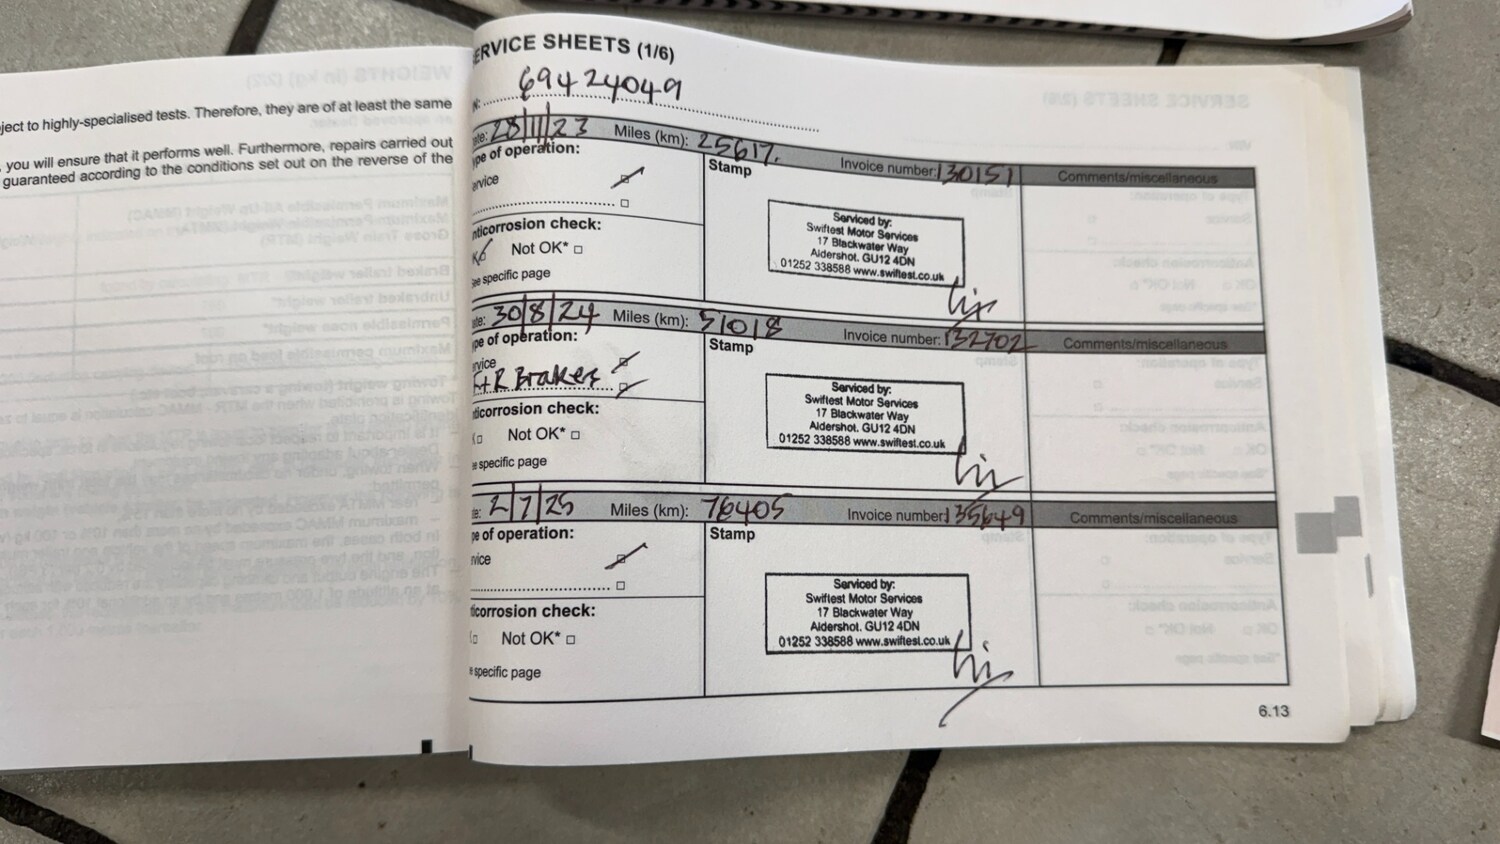 ject to highly-specialised tests. Therefore, they are of at least the same
you will ensure that it performs well. Furthermore, repairs carried out
guaranteed according to the conditions set out on the reverse of the
ERVICE SHEETS (1/6)
69424049
ate: 28/11/23 Miles (km): 25617. Invoice number: 130151 Comments/miscellaneous
pe of operation: Stamp
ervice
nticorrosion check:
Not OK* □
ee specific page
Serviced by:
Swiftest Motor Services
17 Blackwater Way
Aldershot. GU12 4DN
01252 338588 www.swiftest.co.uk
te: 30/8/24 Miles (km): 51018 Invoice number: 132702 Comments/miscellaneous
pe of operation: Stamp
rvice
F+R Brakes
ticorrosion check:
Not OK* □
e specific page
Serviced by:
Swiftest Motor Services
17 Blackwater Way
Aldershot. GU12 4DN
01252 338588 www.swiftest.co.uk
te: 2/7/25 Miles (km): 76405 Invoice number: 135649 Comments/miscellaneous
pe of operation: Stamp
rvice
ticorrosion check:
Not OK* □
e specific page
Serviced by:
Swiftest Motor Services
17 Blackwater Way
Aldershot. GU12 4DN
01252 338588 www.swiftest.co.uk
6.13